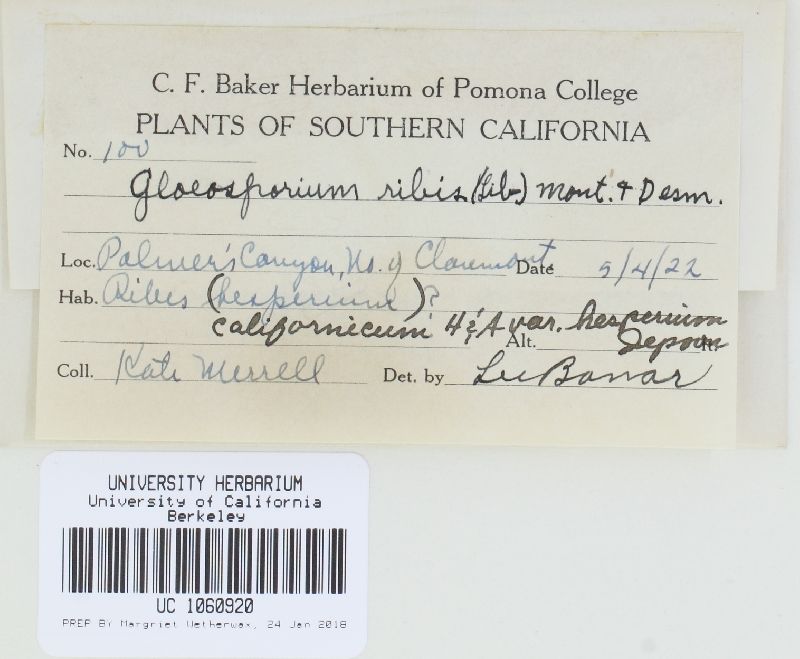 C. F. Baker Herbarium of Pomona College
PLANTS OF SOUTHERN CALIFORNIA
No. 100
Gloeosporium ribis (Lib.) Mont. & Desm.
Loc. Palmer's Canyon, No. of Claremont Date 5/4/22
Hab. Ribes (hesperium)?
californicum H & A var. hesperium
Alt. Jepson ft.
Coll. Kate Merrell Det. by Lee Bonar
UNIVERSITY HERBARIUM
University of California
Berkeley
UC 1060920
PREP BY Margriet Wetherwax, 24 Jan 2018